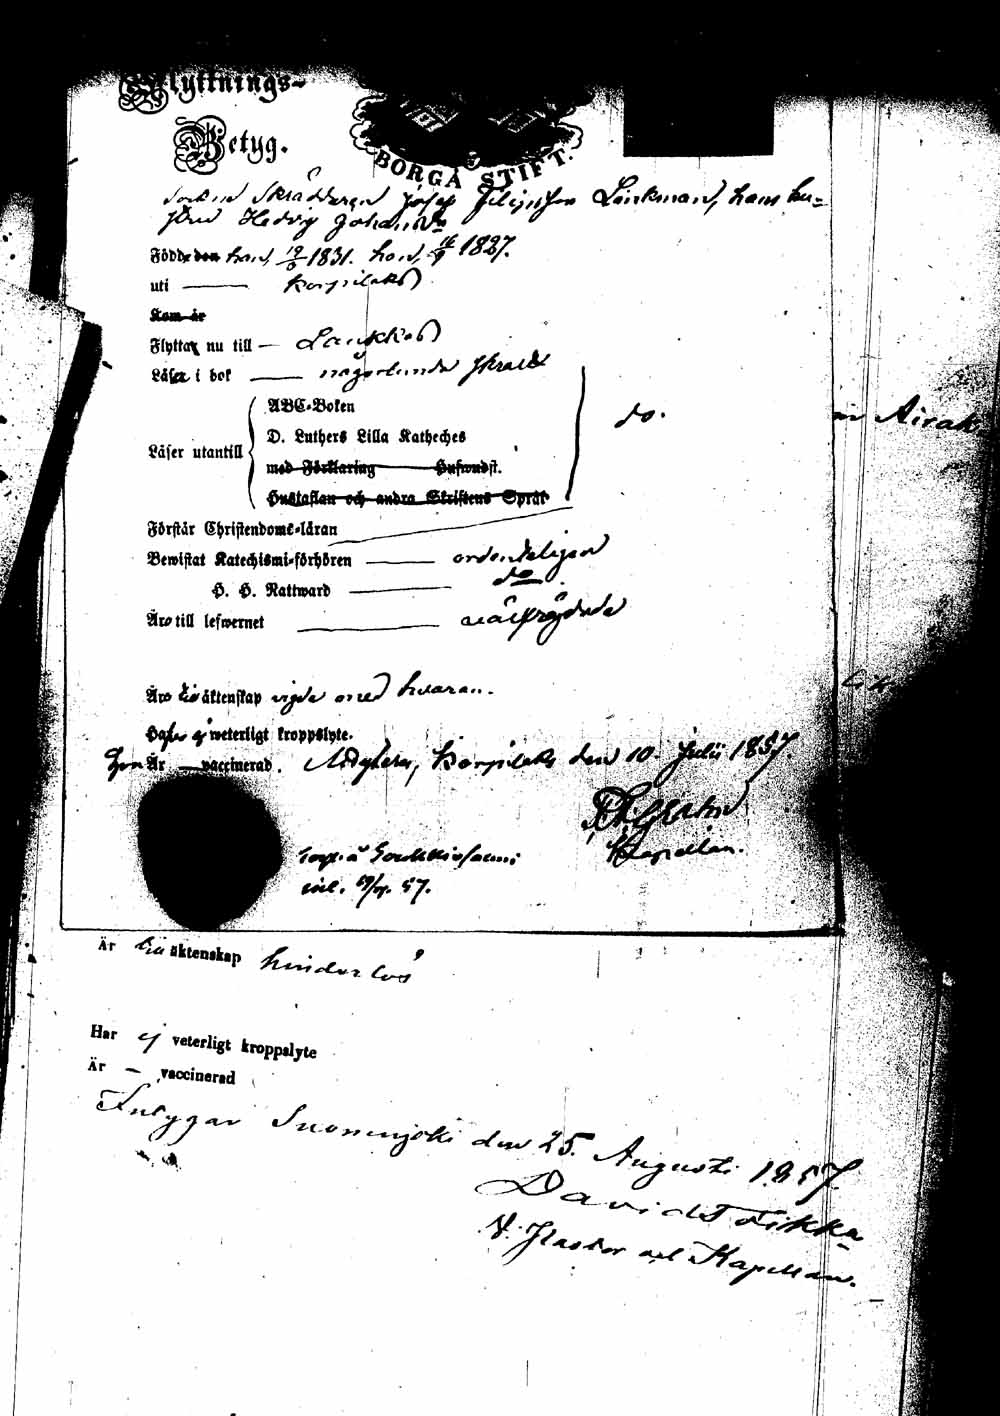 Flyttnings-
Betyg.
BORGÅ STIFT.
Skräddaren Josef Filipsson Linkman, hans hu-
stru Hedvig Johans
Födde den han, 1831. hon, 1827.
uti Korpilaks
Kom år
Flyttar nu till — Laukkas
Läsa i bok någorlunda
ABC-Boken
Läser utantill
D. Luthers Lilla Katheches
med Förklaring Huswudst.
Hustaflan och andra Skriftens Språk
do.
Airak
Förstår Christendoms-läran
Bewistat Katechismi-förhören ordenteligen
H. H. Nattward do
Äro till lefwernet välfrägdade
Äro äktenskap vigde med hvaran.
Hafva ej weterligt kroppslyte.
Är — vaccinerad. Korpilaks den 10. Julii 1857.
Kapellan.
57.
Är äktenskap hinderlös
Har ej veterligt kroppslyte
Är — vaccinerad
Intygar Suonenjoki den 25. Augusti 1857.
David Tikka
V. Pastor och Kapellan.